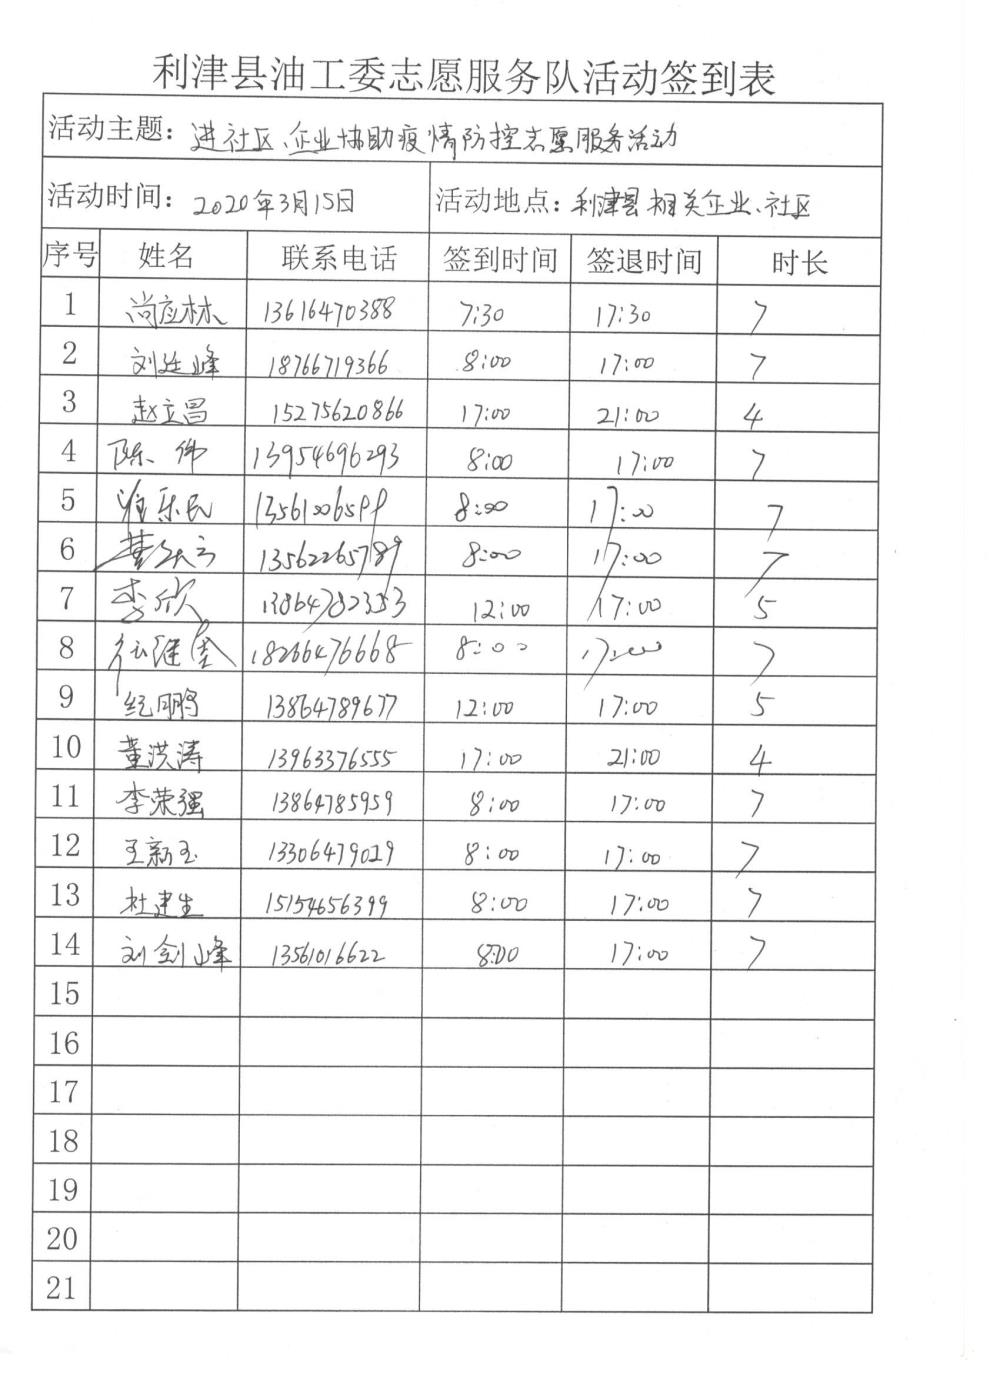 利津县油工委志愿服务队活动签到表
活动主题：进社区、企业协助疫情防控志愿服务活动
活动时间：2020年3月15日 活动地点：利津县相关企业、社区
序号 姓名 联系电话 签到时间 签退时间 时长
1 尚应林 13616470388 7:30 17:30 7
2 刘廷峰 18766719366 8:00 17:00 7
3 赵立昌 15275620866 17:00 21:00 4
4 陈伟 13954696293 8:00 17:00 7
5 乐民 8:00 17:00 7
6 13562265789 8:00 17:00 7
7 李欣 13864782353 12:00 17:00 5
8 18266476668 8:00 17:00 7
9 纪鹏 13864789677 12:00 17:00 5
10 董洪涛 13963376555 17:00 21:00 4
11 李荣强 13864785959 8:00 17:00 7
12 王新玉 13306479029 8:00 17:00 7
13 杜建生 15154656399 8:00 17:00 7
14 刘剑峰 13561016622 8:00 17:00 7
15
16
17
18
19
20
21